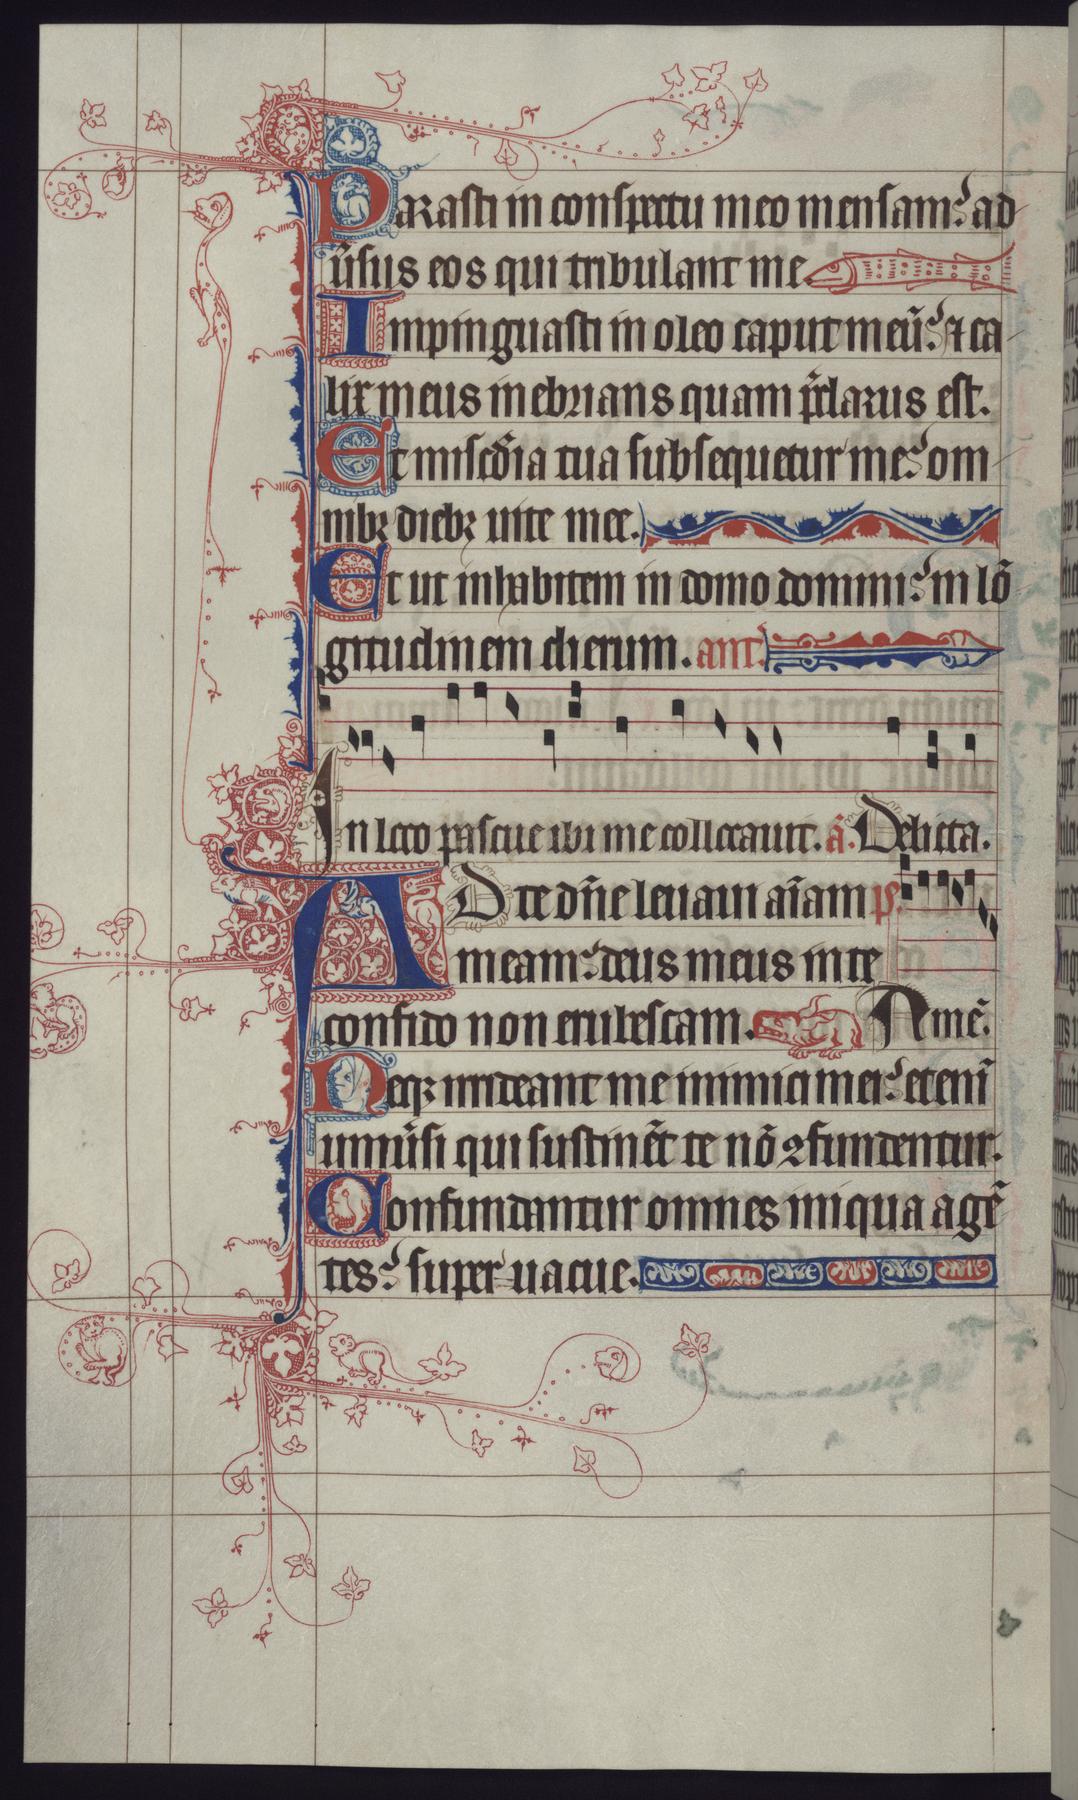 Parasti in conspectu meo mensam: ad
ũsus eos qui tribulant me.
Impinguasti in oleo caput meũ: ⁊ ca
lix meus inebrians quam p̃clarus est.
Et misc̃dia tua subsequetur me: om
nibꝫ diebꝫ uite mee.
Et ut inhabitem in domo domini: in lõ
gitudinem dierum. ant.
In loco pascue ibi me collocauit. ã. Delicta.
AD te dñe leuaui aĩam ps.
meam: deus meus in te
confido non erubescam. Amẽ.
Neqꝫ irrideant me inimici mei: etenĩ
uniuũsi qui sustinẽt te nõ ꝯfundentur.
Confundantur omnes iniqua agẽ
tes: super uacue.